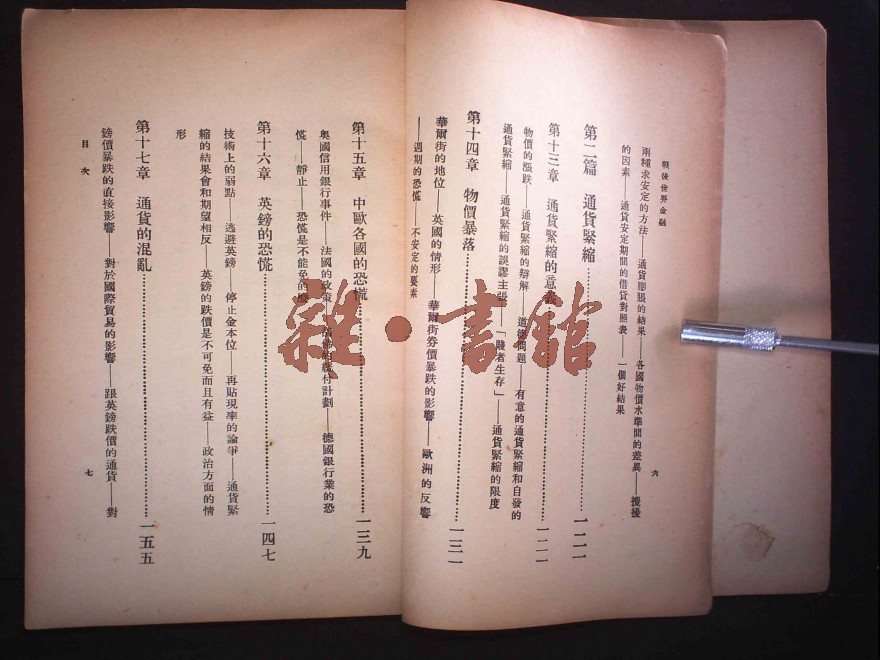 戰後世界金融
六
兩種求安定的方法——通貨膨脹的結果——各國物價水準間的差異——擾擾
的因素——通貨安定期間的借貸對照表——一個好結果
第二篇 通貨緊縮……一二一
第十三章 通貨緊縮的意義……一二一
物價的漲跌——通貨緊縮的辯解——道德問題——有意的通貨緊縮和自發的
通貨緊縮——通貨緊縮的誤謬主張——「賤者生存」——通貨緊縮的限度
第十四章 物價暴落……一三一
華爾街的地位——英國的情形——華爾街券價暴跌的影響——歐洲的反響
——週期的恐慌——不安定的要素
第十五章 中歐各國的恐慌……一三九
奧國信用銀行事件——法國的政策——付計劃——德國銀行業的恐
慌——靜止——恐慌是不能免的
第十六章 英鎊的恐慌……一四七
技術上的弱點——逃避英鎊——停止金本位——再貼現率的論爭——通貨緊
縮的結果會和期望相反——英鎊的跌價是不可免而且有益——政治方面的情
形
第十七章 通貨的混亂……一五五
鎊價暴跌的直接影響——對於國際貿易的影響——跟英鎊跌價的通貨——對
目次
七
雜·書館